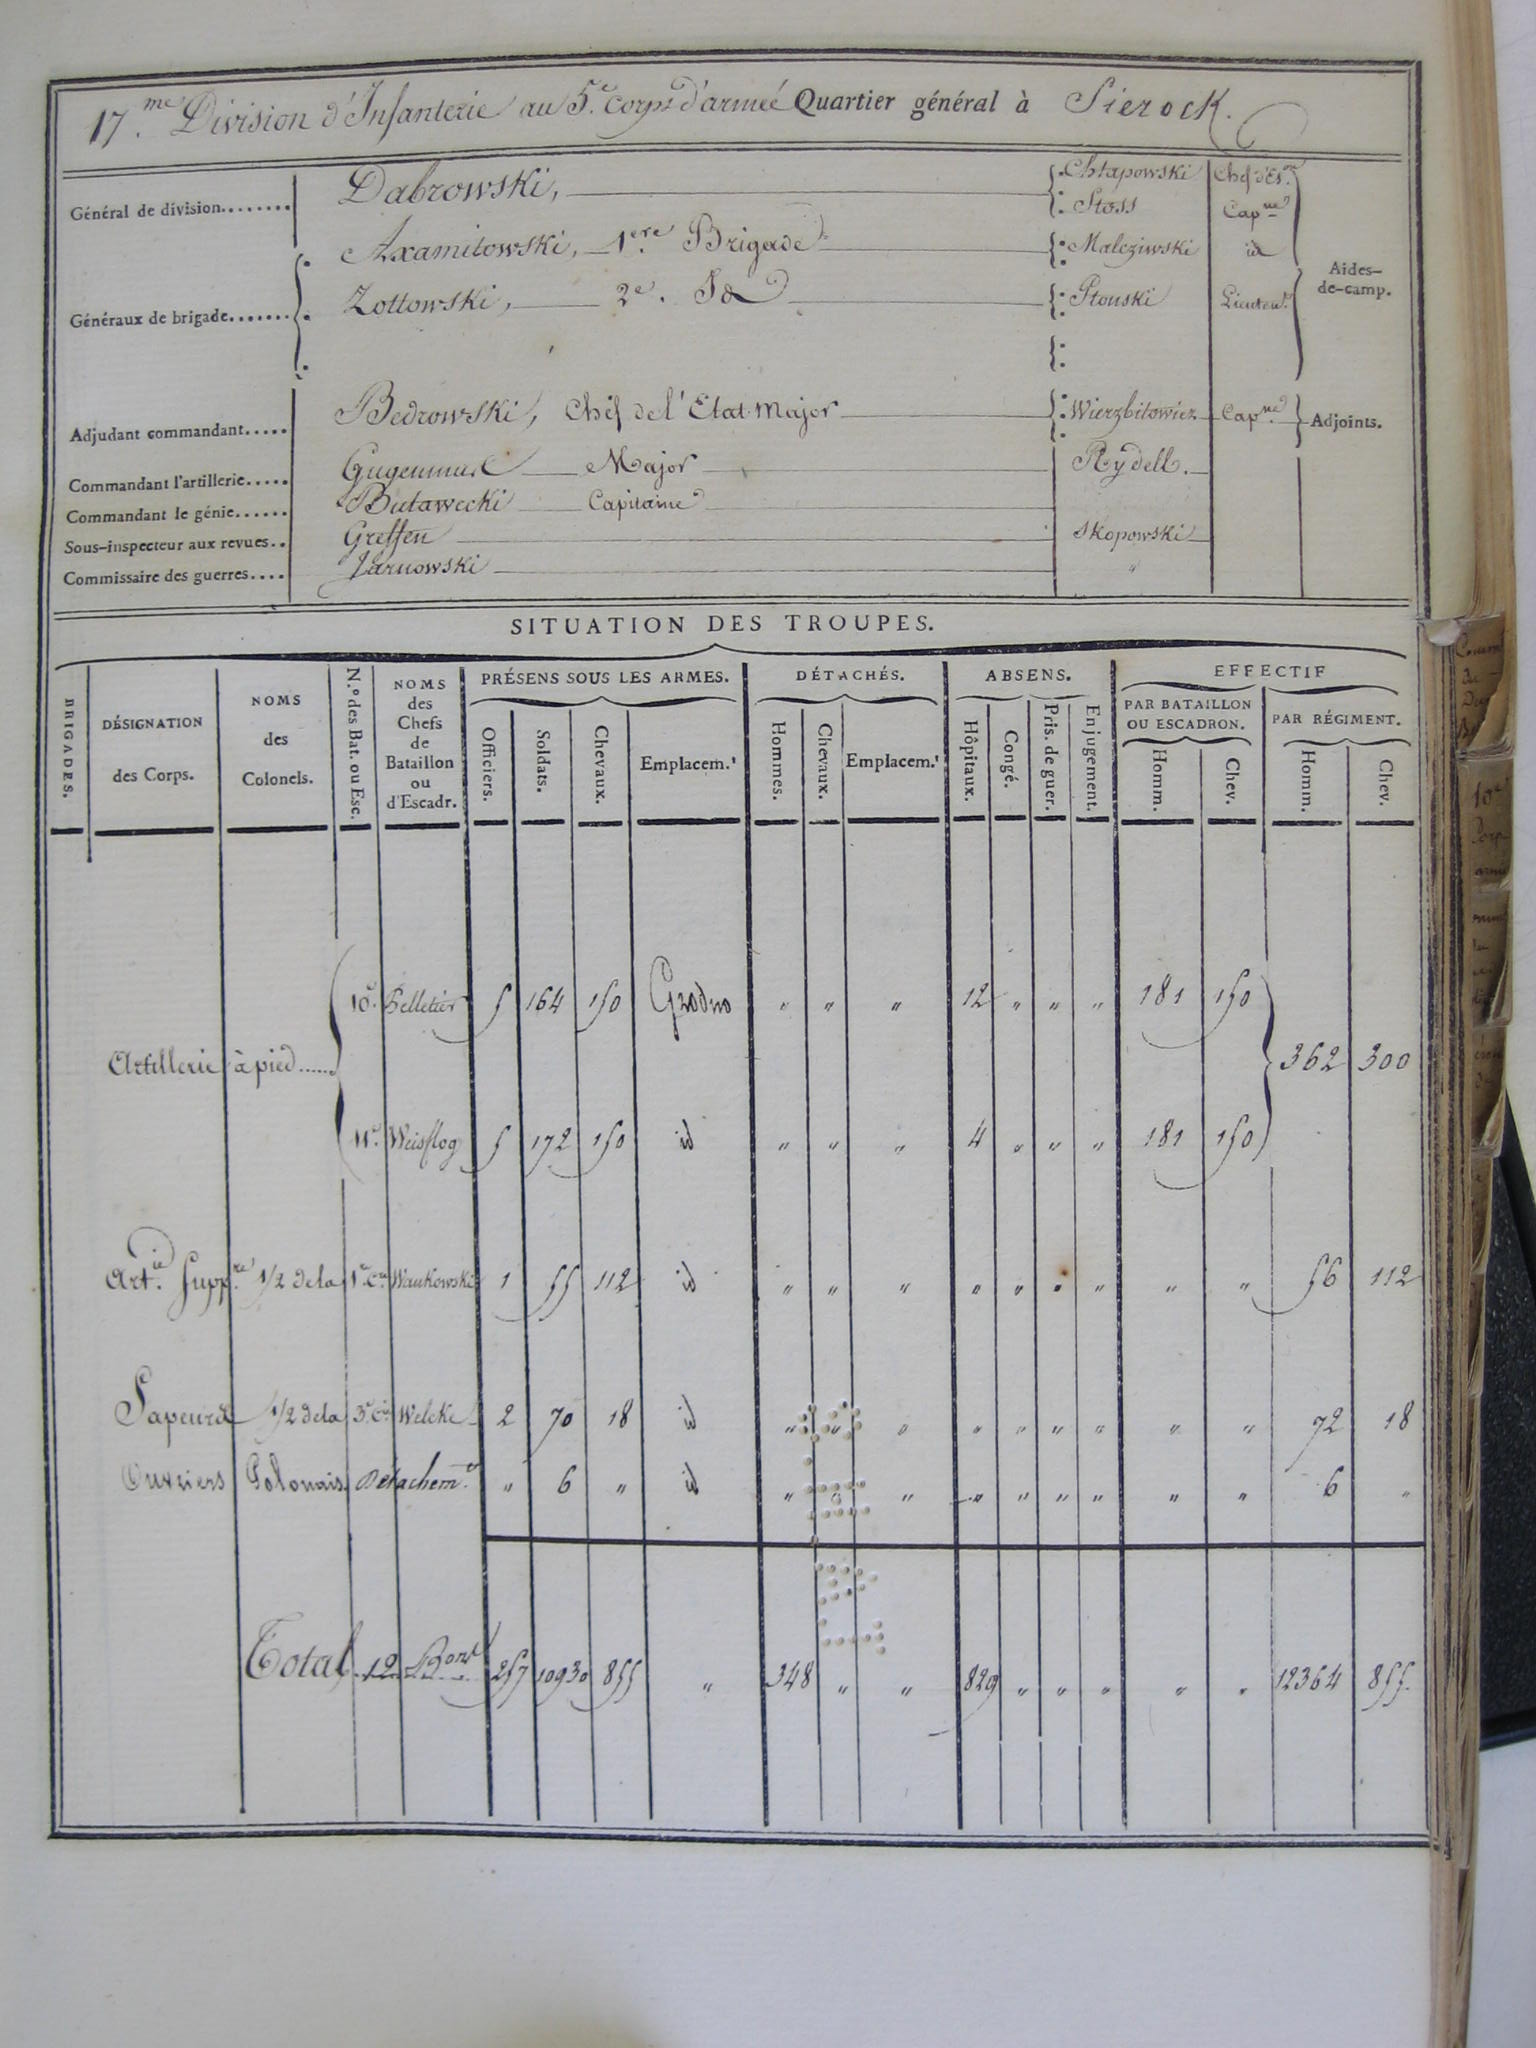 17.me Division d'Infanterie au 5.e Corps d'armeé Quartier général à Sierock.
Général de division........ Dabrowski, Chtapowski Chef d'Es.on
Stoss Cap.ne
Généraux de brigade....... Axamitowski, 1.ere Brigade Malcziwski id
Zottowski, 2e. Id Ptouski Lieuten.t
Aides-de-camp.
Adjudant commandant..... Bedrowski, Chef de l'Etat-major Wierzbitowicz Cap.ne Adjoints.
Commandant l'artillerie..... Gugenmus Major Rydell.
Commandant le génie...... Butawecki Capitaine
Sous-inspecteur aux revues.. Greffen Skopowski
Commissaire des guerres.... Jarnowski "
SITUATION DES TROUPES.
BRIGADES. DÉSIGNATION des Corps. NOMS des Colonels. N.º des Bat. ou Esc. NOMS des Chefs de Bataillon ou d'Escadr. PRÉSENS SOUS LES ARMES. DÉTACHÉS. ABSENS. EFFECTIF
PAR BATAILLON OU ESCADRON. PAR RÉGIMENT.
Officiers. Soldats. Chevaux. Emplacem.t Hommes. Chevaux. Emplacem.t Hôpitaux. Congé. Pris. de guer. Enjugement. Homm. Chev. Homm. Chev.
10e. Pelletier 5 164 150 Grodno " " " 12 " " " 181 150
Artillerie à pied...... 362 300
11e. Weisflog 5 172 150 id " " " 4 " " " 181 150
Art.ie Supp.re 1/2 de la 1e Cie Waukowski 1 55 112 id " " " " " " " " " 56 112
Sapeurs 1/2 de la 3e Cie Welcke 2 70 18 id " " " " " " " " " 72 18
Ouvriers Polonais Détachem.t " 6 " id " " " " " " " " " 6 "
Total 12 B.ons 257 10930 855 " 348 " " 829 " " " " " 12364 855.